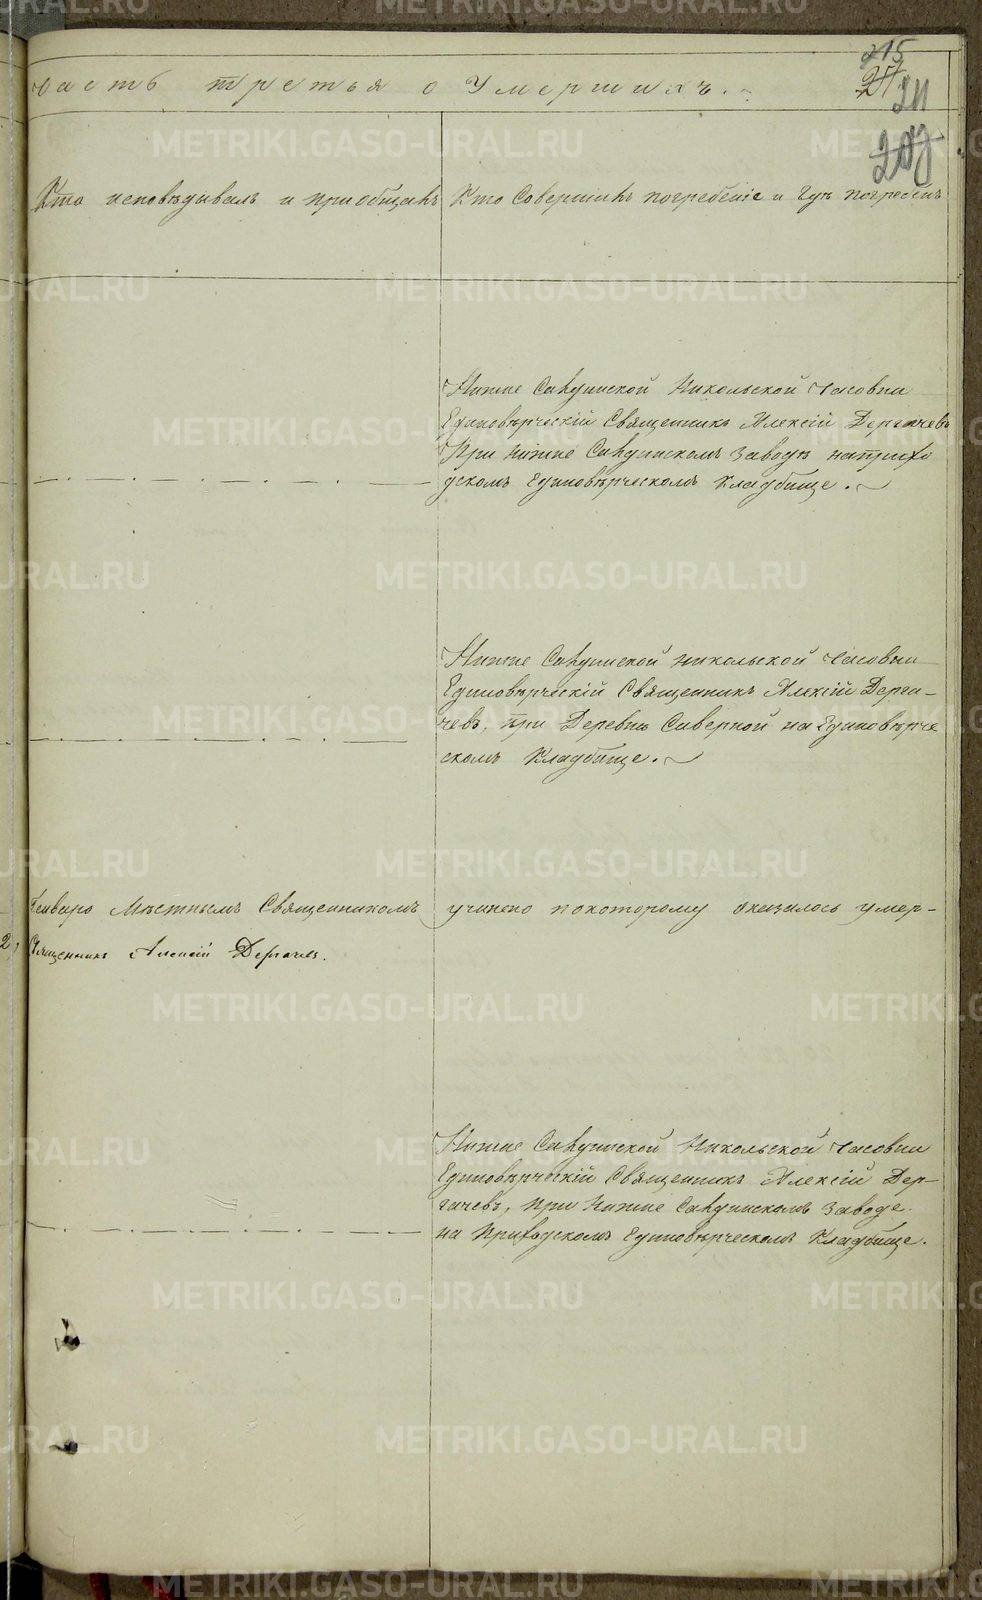 215
211
часть третья о Умершихъ.
Кто исповѣдывалъ и приобщалъ
Кто Совершилъ погребеніе и Гдѣ погребенъ
Нижне Салдинской Никольской Часовни
Единовѣрческій Священникъ Алексій Дергачевъ
При Нижне Салдинскомъ заводѣ
дскомъ Единовѣрческомъ Кладбище.
Нижне Салдинской Никольской Часовни
Единовѣрческій Священникъ Алексій Дерга-
чевъ. при Деревнѣ Северной на Единовѣрче
скомъ Кладбище.
Мѣстнымъ Священникомъ учинено покоторому оказалось умер-
Священникъ Алексій Дергачев.
Нижне Салдинской Никольской Часовни
Единовѣрческій Священникъ Алексій Дер-
гачевъ, при Нижне Салдинскомъ Заводе
на Приходскомъ Единовѣрческомъ Кладбище.
METRIKI.GASO-URAL.RU